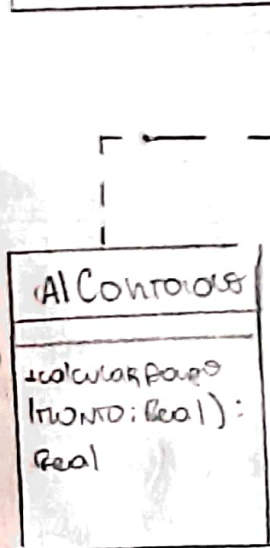 Al Contado
+calcularPago
(monto: Real):
Real